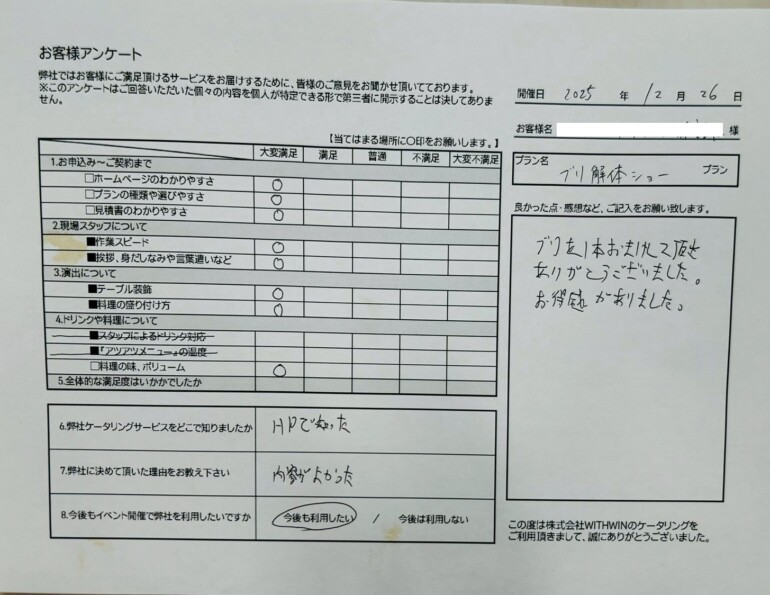 お客様アンケート
弊社ではお客様にご満足頂けるサービスをお届けするために、皆様のご意見をお聞かせ頂いております。
※このアンケートはご回答いただいた個々の内容を個人が特定できる形で第三者に開示することは決してありま
せん。
開催日 2025 年 12 月 26 日
お客様名 様
プラン名
ブリ解体ショー プラン
【当てはまる場所に○印をお願いします。】
大変満足 満足 普通 不満足 大変不満足
1.お申込み～ご契約まで
□ホームページのわかりやすさ ○
□プランの種類や選びやすさ ○
□見積書のわかりやすさ ○
2.現場スタッフについて
■作業スピード ○
■挨拶、身だしなみや言葉遣いなど ○
3.演出について
■テーブル装飾 ○
■料理の盛り付け方 ○
4.ドリンクや料理について
■スタッフによるドリンク対応
■『アツアツメニュー』の温度
□料理の味、ボリューム ○
5.全体的な満足度はいかがでしたか
6.弊社ケータリングサービスをどこで知りましたか HPで知った
7.弊社に決めて頂いた理由をお教え下さい 内容がよかった
8.今後もイベント開催で弊社を利用したいですか 今後も利用したい / 今後は利用しない
良かった点・感想など、ご記入をお願い致します。
ブリを1本おまけして頂き
ありがとうございました。
お得感がありました。
この度は株式会社WITHWINのケータリングを
ご利用頂きまして、誠にありがとうございました。